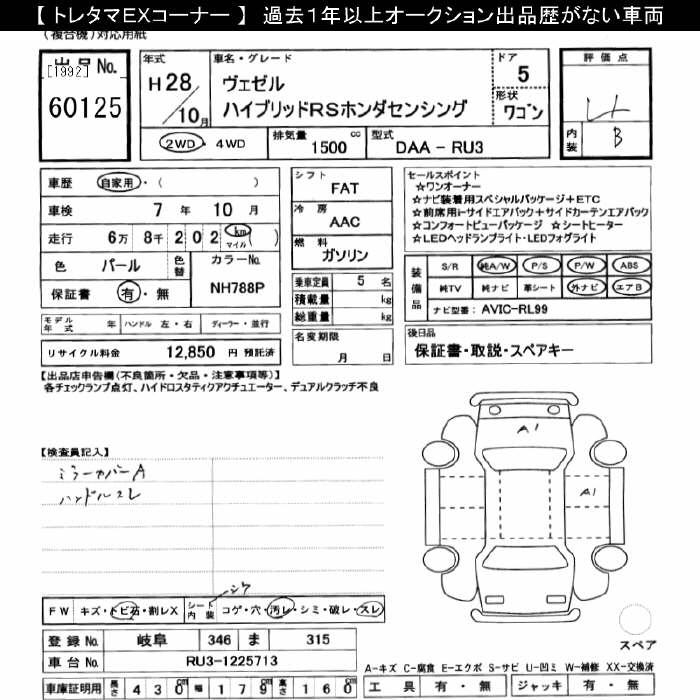 【 トレタマEXコーナー 】 過去１年以上オークション出品歴がない車両
(複合機)対応用紙
出品No.
[1992]
60125
年式
H28/10月
車名・グレード
ヴェゼル
ハイブリッドRSホンダセンシング
ドア
5
形状
ワゴン
2WD・4WD
排気量 1500 cc
型式 DAA-RU3
評価点
内装
B
車歴 自家用・( )
車検 7年 10月
走行 6万 8千 202 km マイル ( )
色 パール
色替
カラーNo.
NH788P
保証書 有・無
シフト
FAT
冷房
AAC
燃料
ガソリン
乗車定員 5 名
積載量 kg
総重量 kg
セールスポイント
☆ワンオーナー
☆ナビ装着用スペシャルパッケージ＋ETC
☆前席用i-サイドエアバック＋サイドカーテンエアバック
☆コンフォートビューパッケージ ☆シートヒーター
☆LEDヘッドランプライト・LEDフォグライト
装備品
S/R 純A/W P/S P/W ABS
純TV 純ナビ 革シート 外ナビ エアB
ナビ型番: AVIC-RL99
モデル年式 年 ハンドル 左・右 ディーラー・並行
リサイクル料金 12,850 円 預託済
名変期限
月 日
後日品
保証書・取説・スペアキー
【出品店申告欄(不良箇所・欠品・注意事項等)】
各チェックランプ点灯、ハイドロスタティクアクチュエーター、デュアルクラッチ不良
【検査員記入】
ミラーカバーA
ハンドルスレ
A1
A1
FW キズ・トビ石・割レX
シート内装 コゲ・穴・汚レ・シミ・破レ・スレ
シワ
登録No. 岐阜 346 ま 315
車台No. RU3-1225713
車庫証明用 長さ 430cm 幅 179cm 高さ 160cm
スペア
A-キズ C-腐食 E-エクボ S-サビ U-凹ミ W-補修 XX-交換済
工具 有・無 ジャッキ 有・無